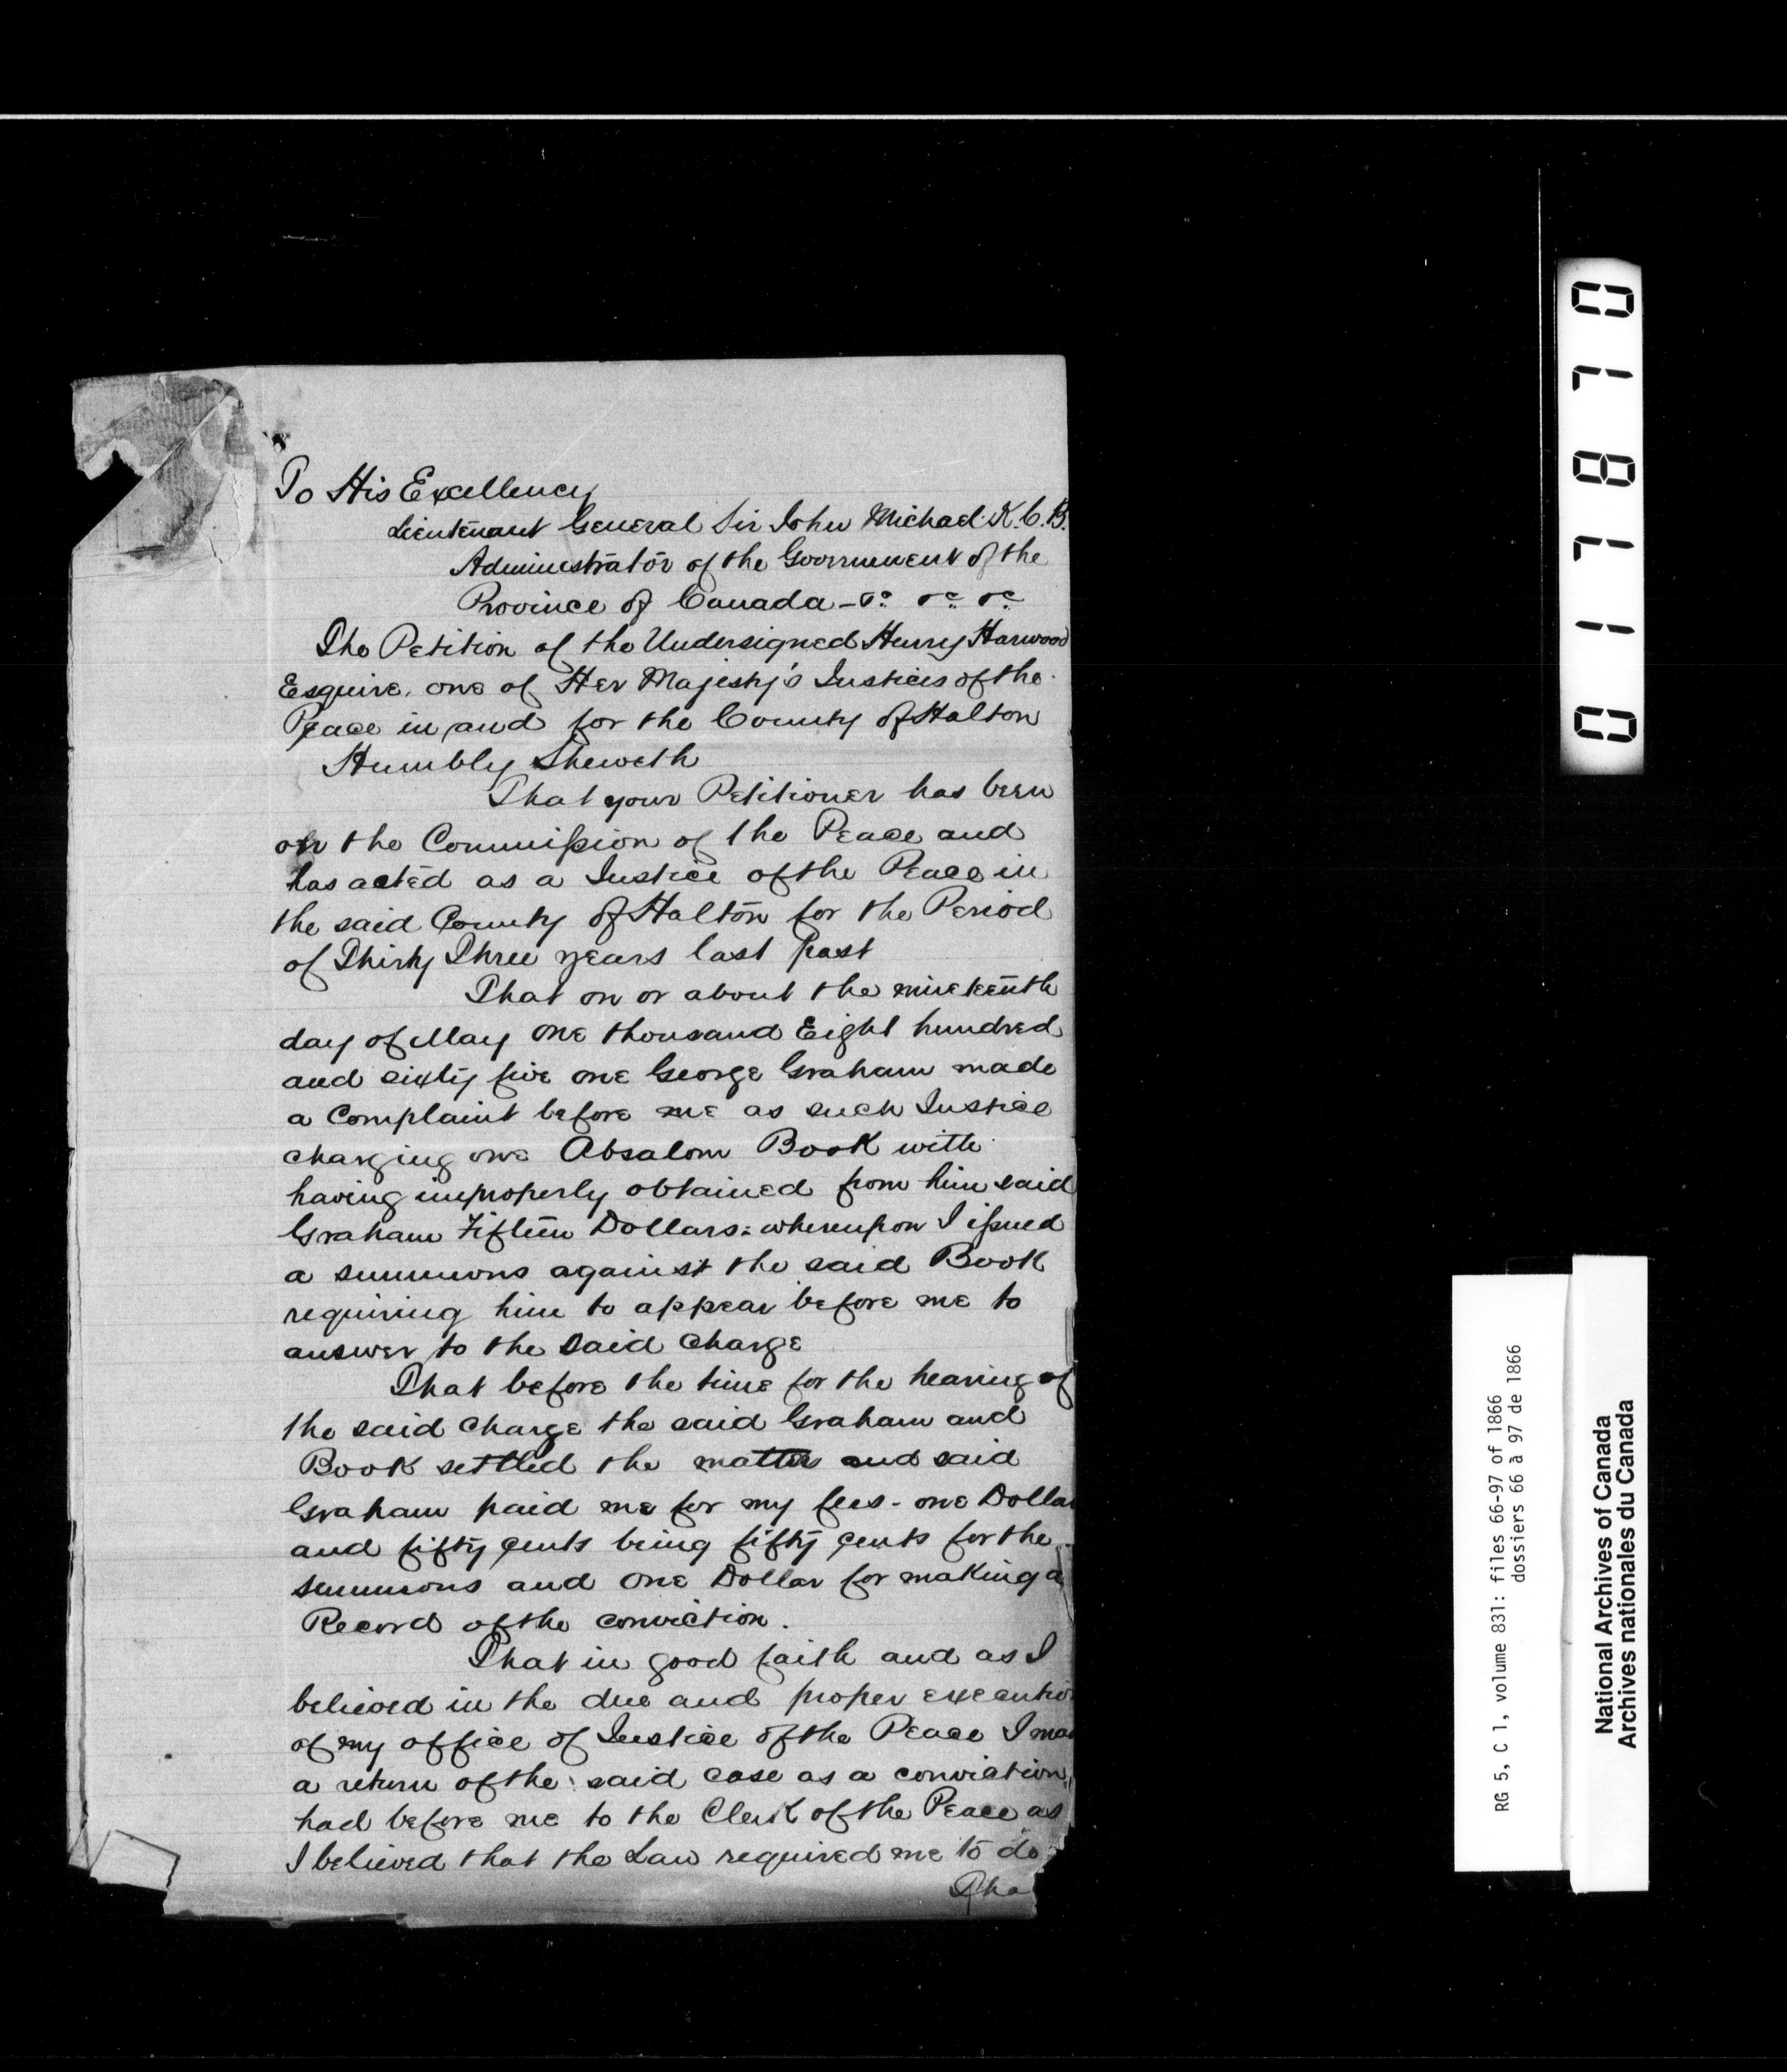 To His Excellency
Lieutenant General Sir John Michael. K.C.B.
Administrator of the Government of the
Province of Canada - &c &c &c
The Petition of the Undersigned Henry Harwood
Esquire, one of Her Majesty's Justices of the
Peace in and for the County of Halton
Humbly Sheweth
That your Petitioner has been
on the Commission of the Peace and
has acted as a Justice of the Peace in
the said County of Halton for the Period
of Thirty Three years last past
That on or about the nineteenth
day of May one thousand Eight hundred
and sixty five one George Graham made
a Complaint before me as such Justice
charging one Absalom Book with
having improperly obtained from him said
Graham Fifteen Dollars: whereupon I issued
a summons against the said Book
requiring him to appear before me to
answer to the said charge
That before the time for the hearing of
the said charge the said Graham and
Book settled the matter and said
Graham paid me for my fees - one Dollar
and fifty cents being fifty cents for the
summons and one Dollar for making a
Record of the conviction.
That in good faith and as I
believed in the due and proper executio
of my office of Justice of the Peace I ma
a return of the said case as a conviction,
had before me to the Clerk of the Peace as
I believed that the Law required me to do
Tha
017870
RG 5, C 1, volume 831: files 66-97 of 1866
dossiers 66 à 97 de 1866
National Archives of Canada
Archives nationales du Canada